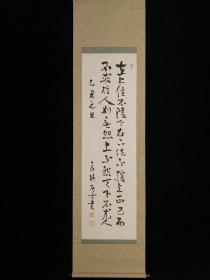 在上位不陵下在下位不援上正己而
不求於人則無怨上不怨天下不尤人
丑
書